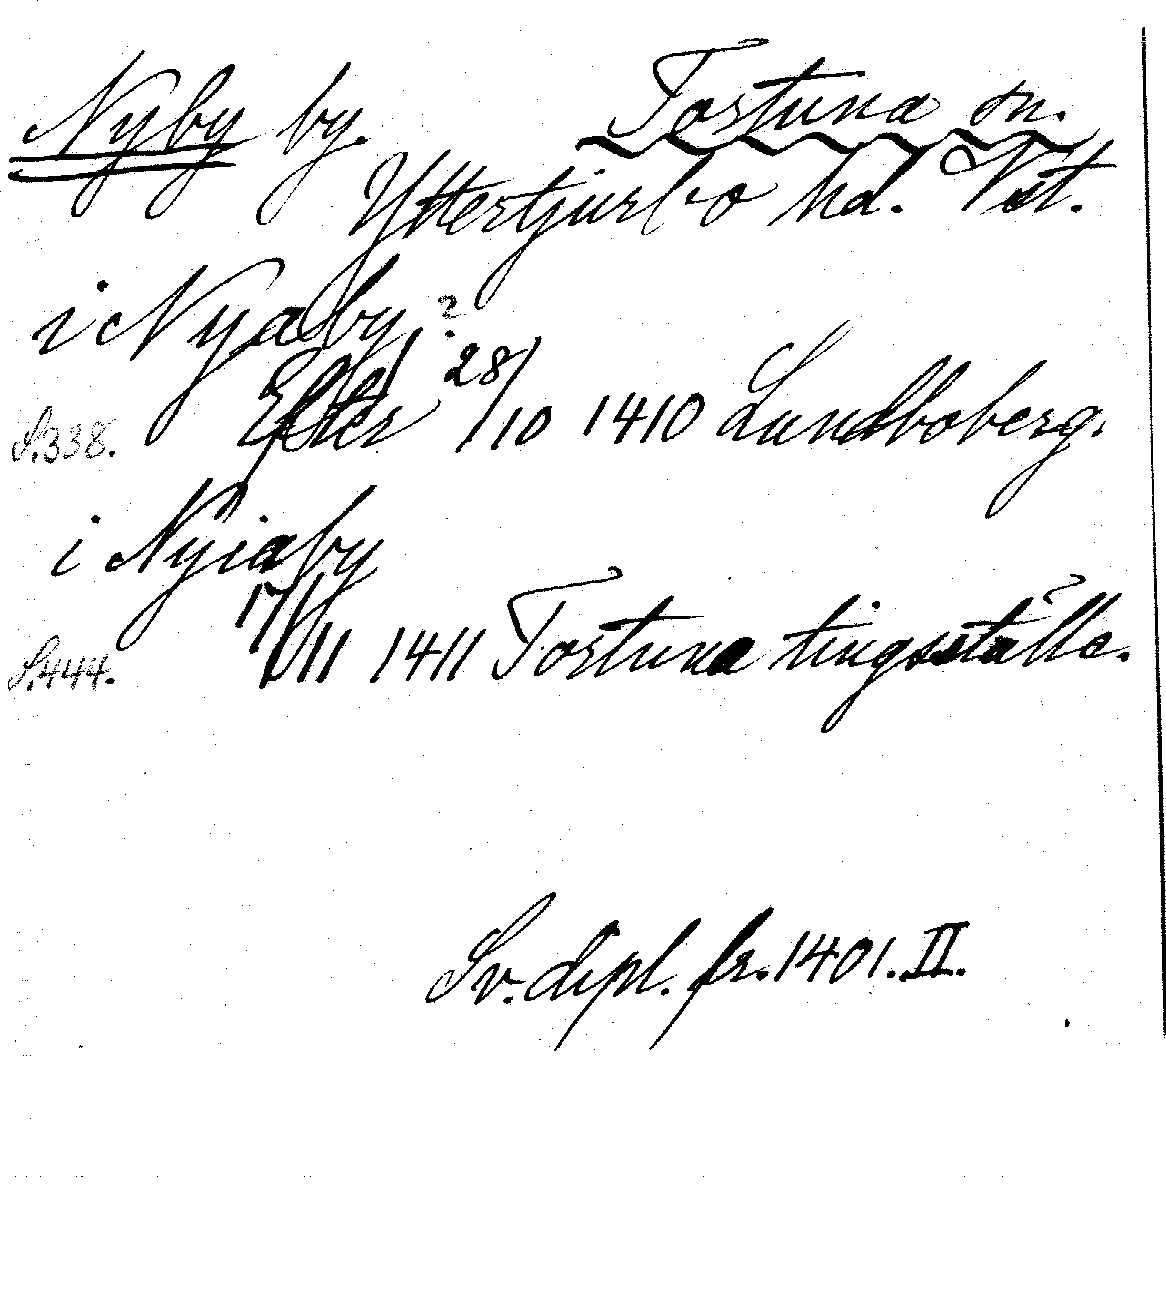 Nyby by. Tortuna sn.
Yttertjurbo hd. Vst.
i Nyaby?
S.338. Efter 28/10 1410 Lundboberg.
i Nyiaby
S.444. 17/11 1411 Tortuna tingsställe.
Sv. dipl. fr. 1401. II.